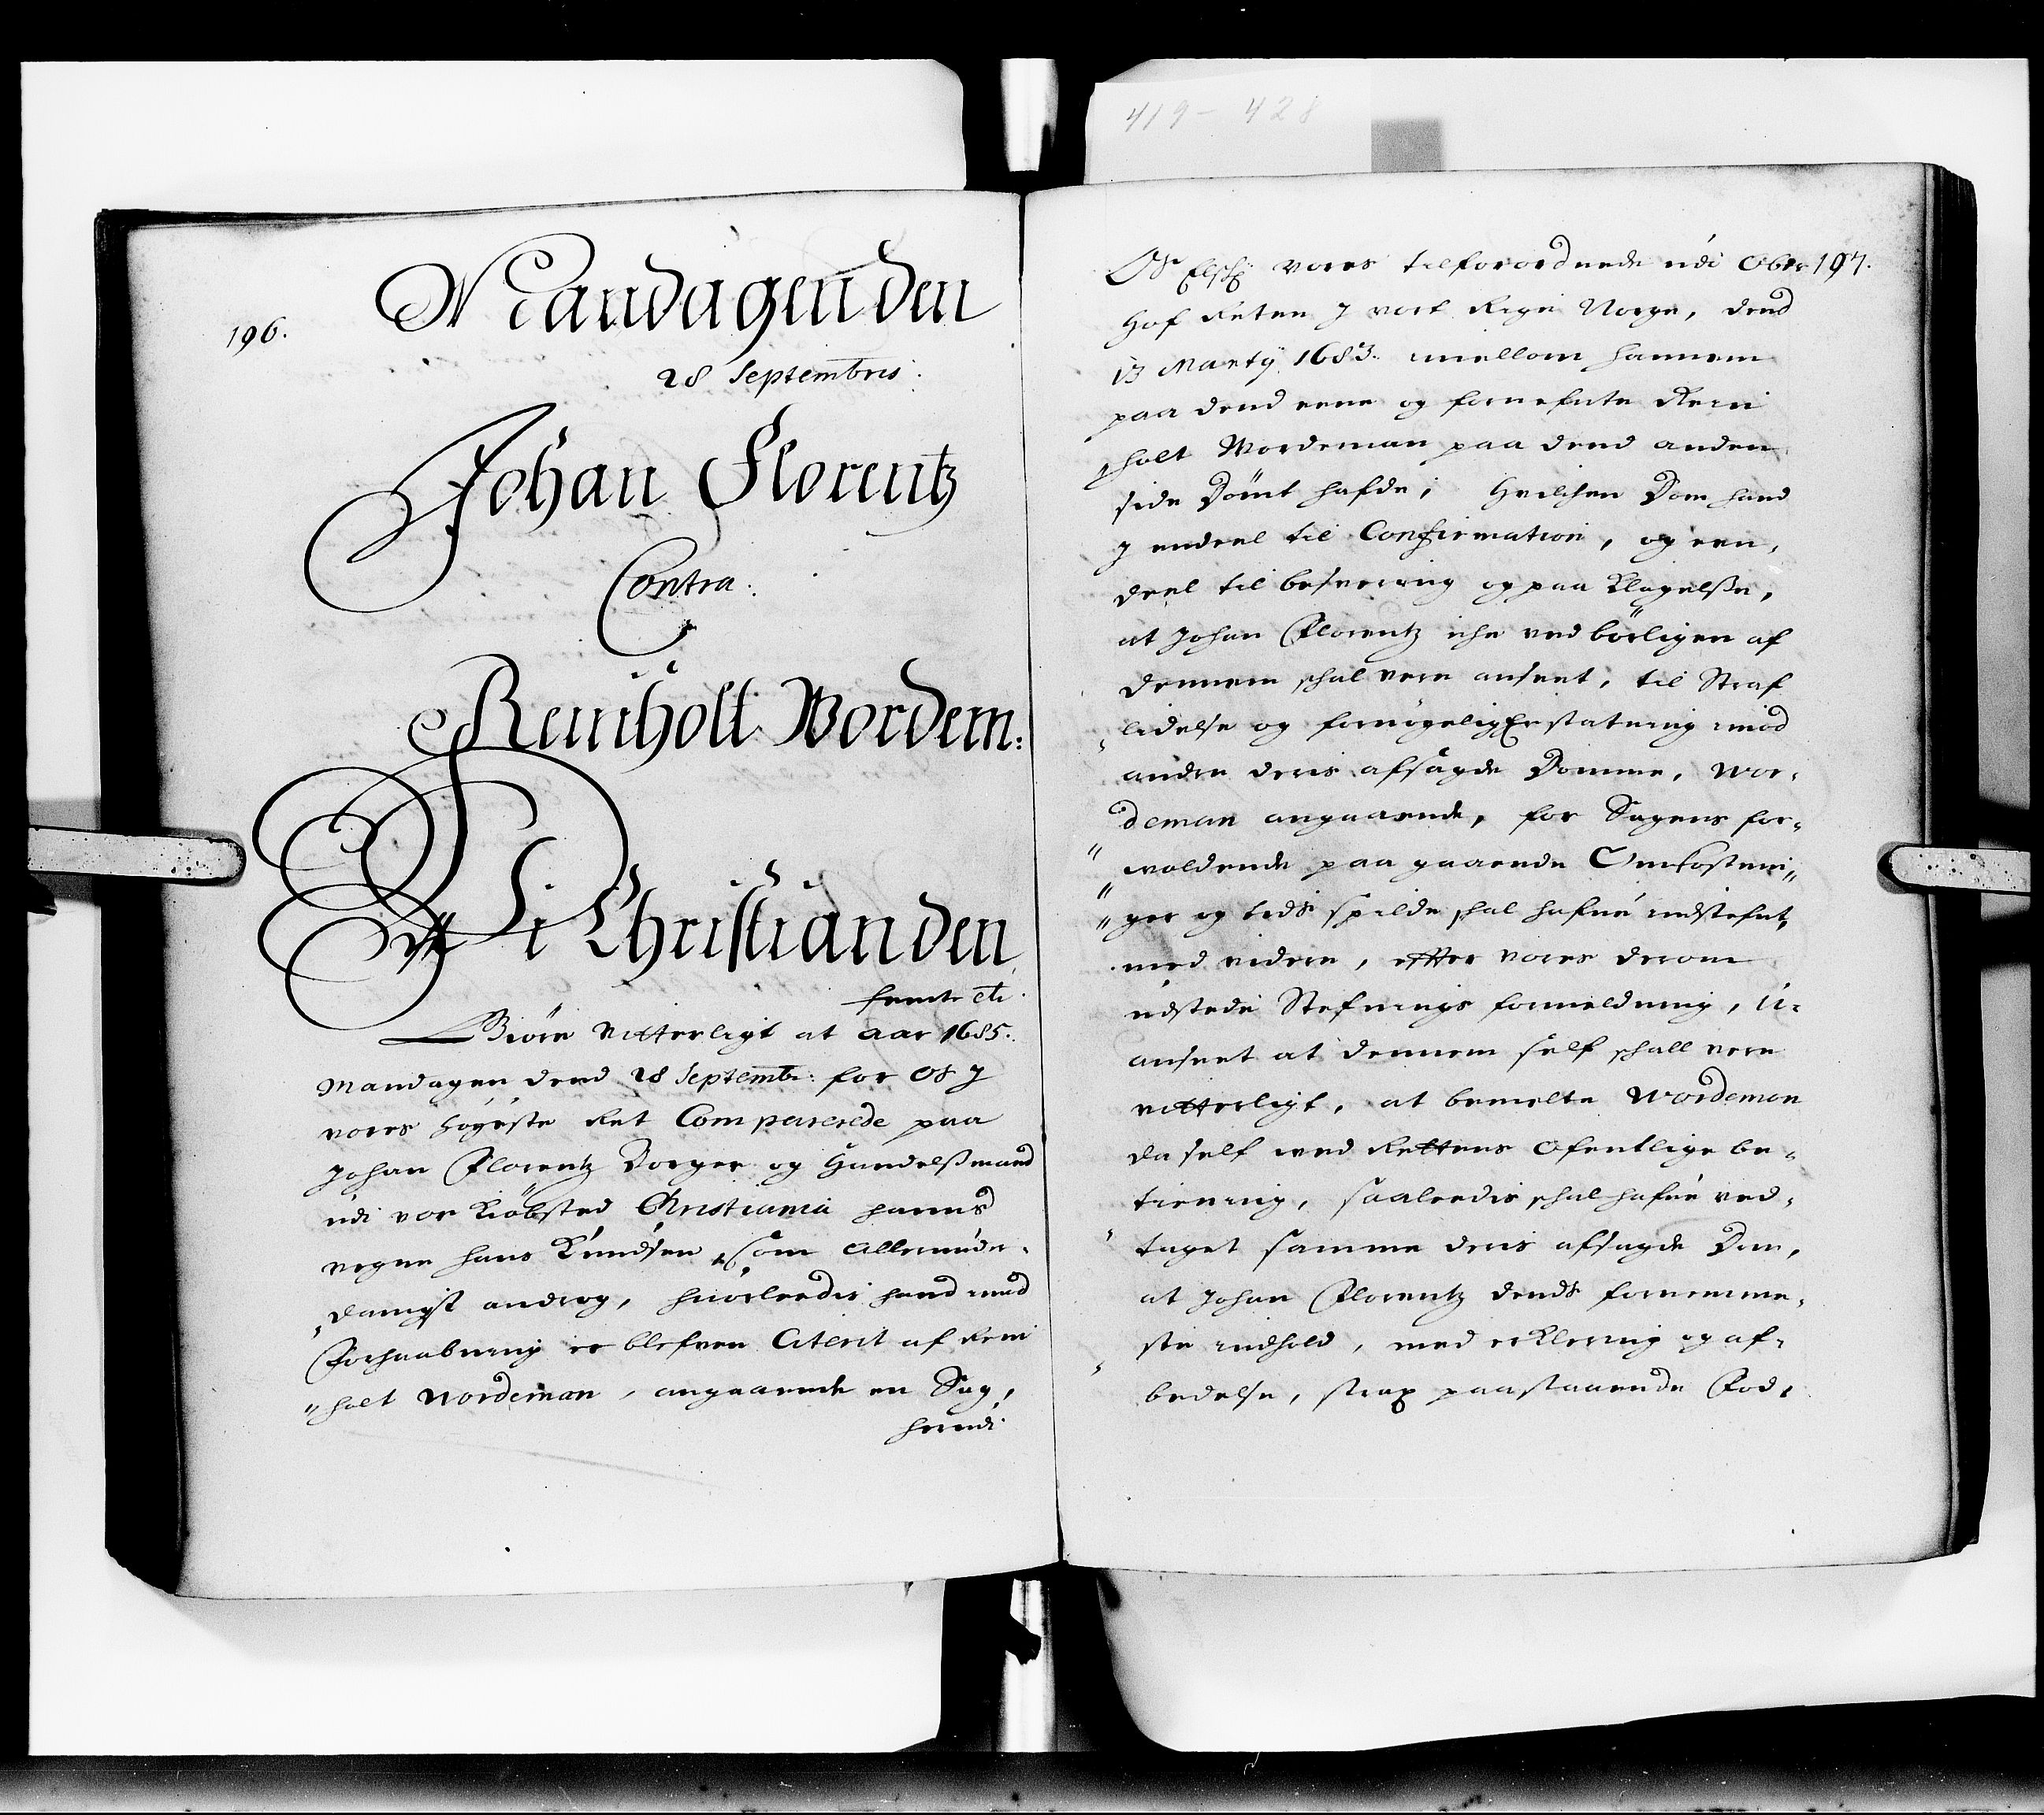 196.
Mandagen den
28 Septembris.
Johan Florentz
Contra.
Reinholt Wordem:
Wi Christian den
femte etc.
Giöre vitterligt at aar 1685.
Mandagen dend 28 Septembr: for Os J
vores högeste Ret Comparerede paa
Johan Florentz Borger og Handelßmand
udi vor Kiöbsted Christiania hanns
vegne Hans Knudsen, som Allerunder-
danigst androg, huorleedis hand med
Forhaabning er blefven Citerit af Rein
holt Wordeman, angaaende en Sag,
herudi
419 - 428
197.
Os Elskel: vores tilforordnede udi Ober
Hof Retten J vort Rige Norge, dend
13 Martij 1683. imellom hannem
paa dend eene og fornefnte Rein
holt Wordeman paa dend anden
side Dömt hafde; Hvilchen Dom hand
J endeel til Confirmation, og een,
deel til besvering og paa Klagelße,
at Johan Florentz iche ved börligen af
dennem schal vere anseet, til Straf
lidelse og fornöyelig Erstatning imod
andre deris afsagde Domme, Wor-
deman angaaende, for Sagens for-
voldende paa gaaende Omkostnin
ger og tids spilde schal hafue indstefnt,
med videre, effter vores derom
udstede Stefnings formeldning, U-
anseet at dennem self schall vere
vitterligt, at bemelte Wordeman
da self ved Rettens Ofentlige be-
tiening, saaleedis schal hafue ved-
taget samme deris afsagde Dom,
at Johan Florentz dends fornemme-
ste indhold, med erklering og af-
bedelse, strax paastaaende Fod,